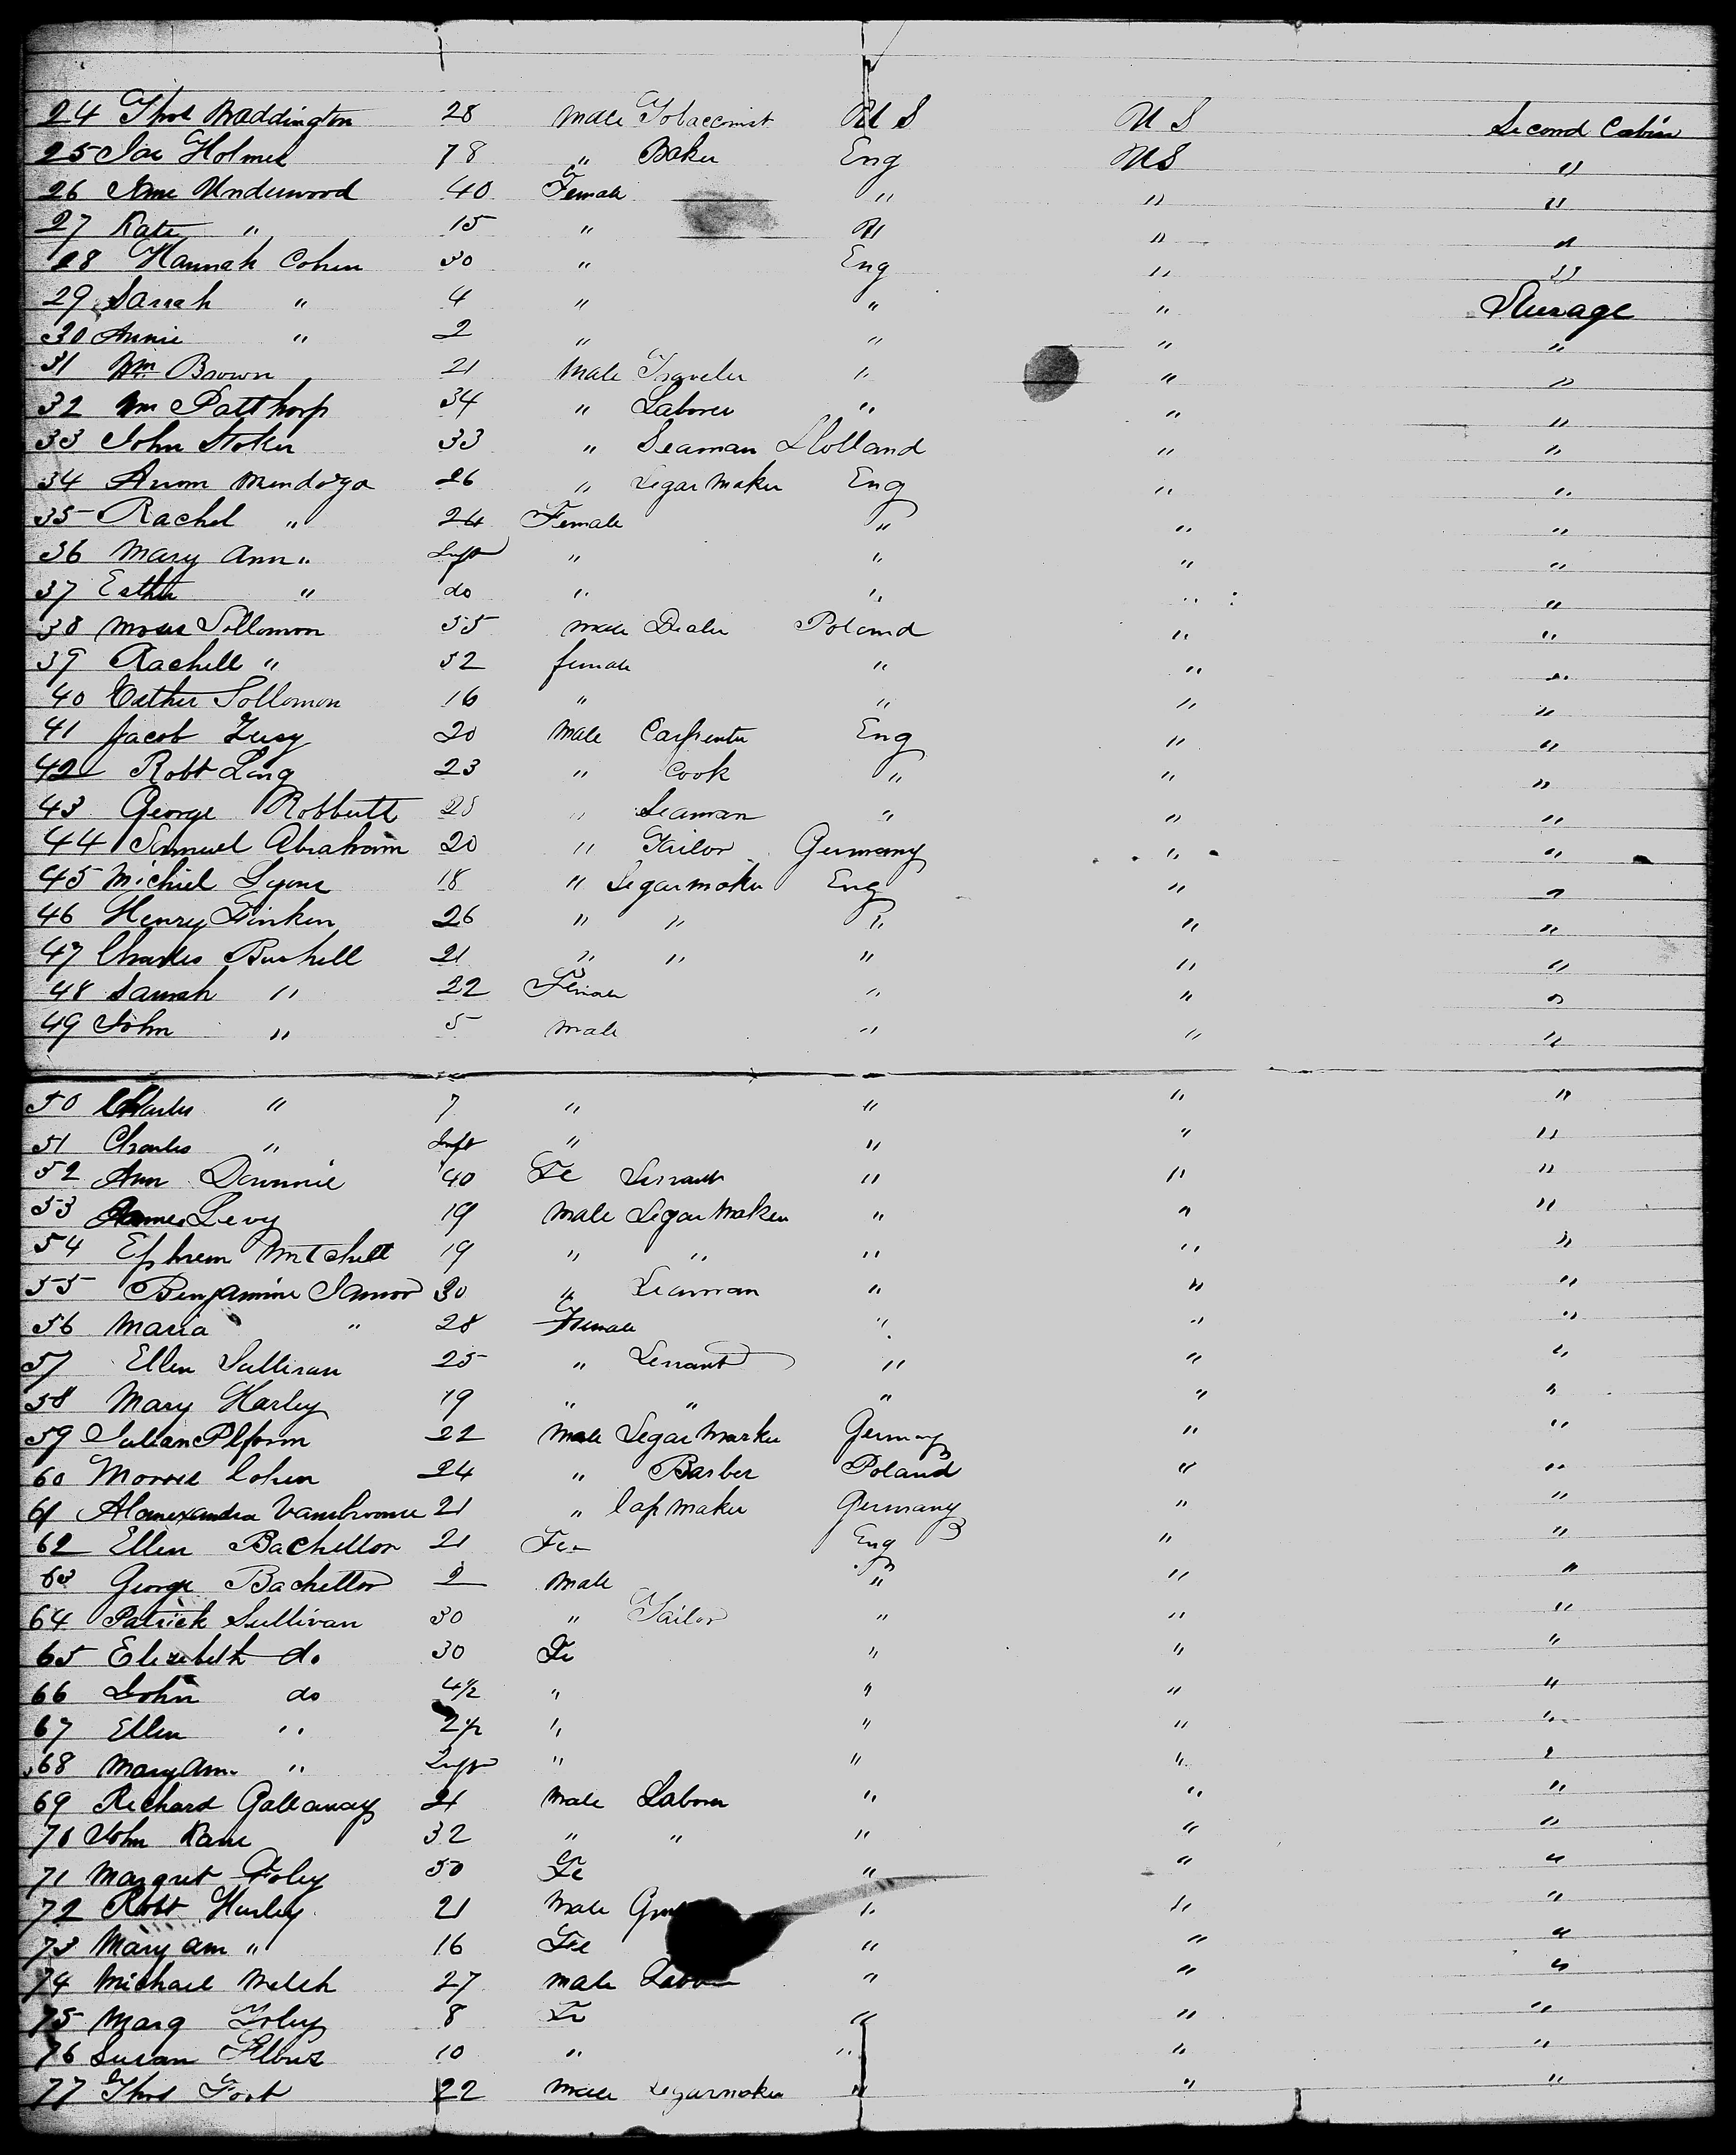 24 Thos Waddington 28 male Tobacconist U S U S Second Cabin
25 Jas Holmes 78 " Baker Eng US "
26 Ame Underwood 40 Female " " "
27 Kate " 15 " " "
28 Hannah Cohen 30 " Eng " "
29 Sarah " 4 " " " Sterage
30 Annie " 2 " " " "
31 Wm Brown 21 Male Traveler " " "
32 Wm Patthorp 34 " Laborer " " "
33 John Stoker 33 " Seaman Holland " "
34 Arom Mendoza 26 " Segar Maker Eng " "
35 Rachel " 24 Female " " "
36 Mary Ann " Inft " " " "
37 Esther " do " " " "
38 Moses Sollomon 55 male Dealer Poland " "
39 Rachell " 52 female " " "
40 Esther Sollomon 16 " " " "
41 Jacob 20 Male Carpenter Eng " "
42 Robt Ling 23 " Cook " " "
43 George Robbutt " Seaman " " "
44 Samuel Abraham 20 " Tailor Germany " "
45 Michiel Lyons 18 " Segarmaker Eng " "
46 Henry Finken 26 " " " " "
47 Charles Bushell 21 " " " " "
48 Sarrah " 22 Female " " "
49 John " 5 male " " "
50 Charles " 7 " " " "
51 Charles " Inft " " " "
52 Ann Downie 40 Fe Servant " " "
53 James Levy 19 Male Segar Maker " " "
54 Ephrem Mitchell 19 " " " " "
55 Benjamine 30 " Seaman " " "
56 Maria " 28 Female " " "
57 Ellen Sullivan 25 " Servant " " "
58 Mary Harley 19 " " " " "
59 Julian 22 Male Segar Marker Germany " "
60 Morris Cohen 24 " Barber Poland " "
61 21 " Cap Maker Germany " "
62 Ellen Bachellor 21 Fe Eng " "
63 George Bachellor 2 Male " " "
64 Patrick Sullivan 30 " Tailor " " "
65 Elizebeth do 30 Fe " " "
66 John do 4½ " " " "
67 Ellen " 2½ " " " "
68 Mary Ann " Inft " " " "
69 Richard Gallaway 21 Male Laborer " " "
70 John Kane 32 " " " " "
71 Margret Foley 50 Fe " " "
72 Robt Hurley 21 Male " " "
73 Mary Ann " 16 Fe " " "
74 Michael Welch 27 male Labor " " "
75 Marg Foley 8 Fe " " "
76 Susan 10 " " " "
77 Thos Foot 22 Male Segarmaker " " "